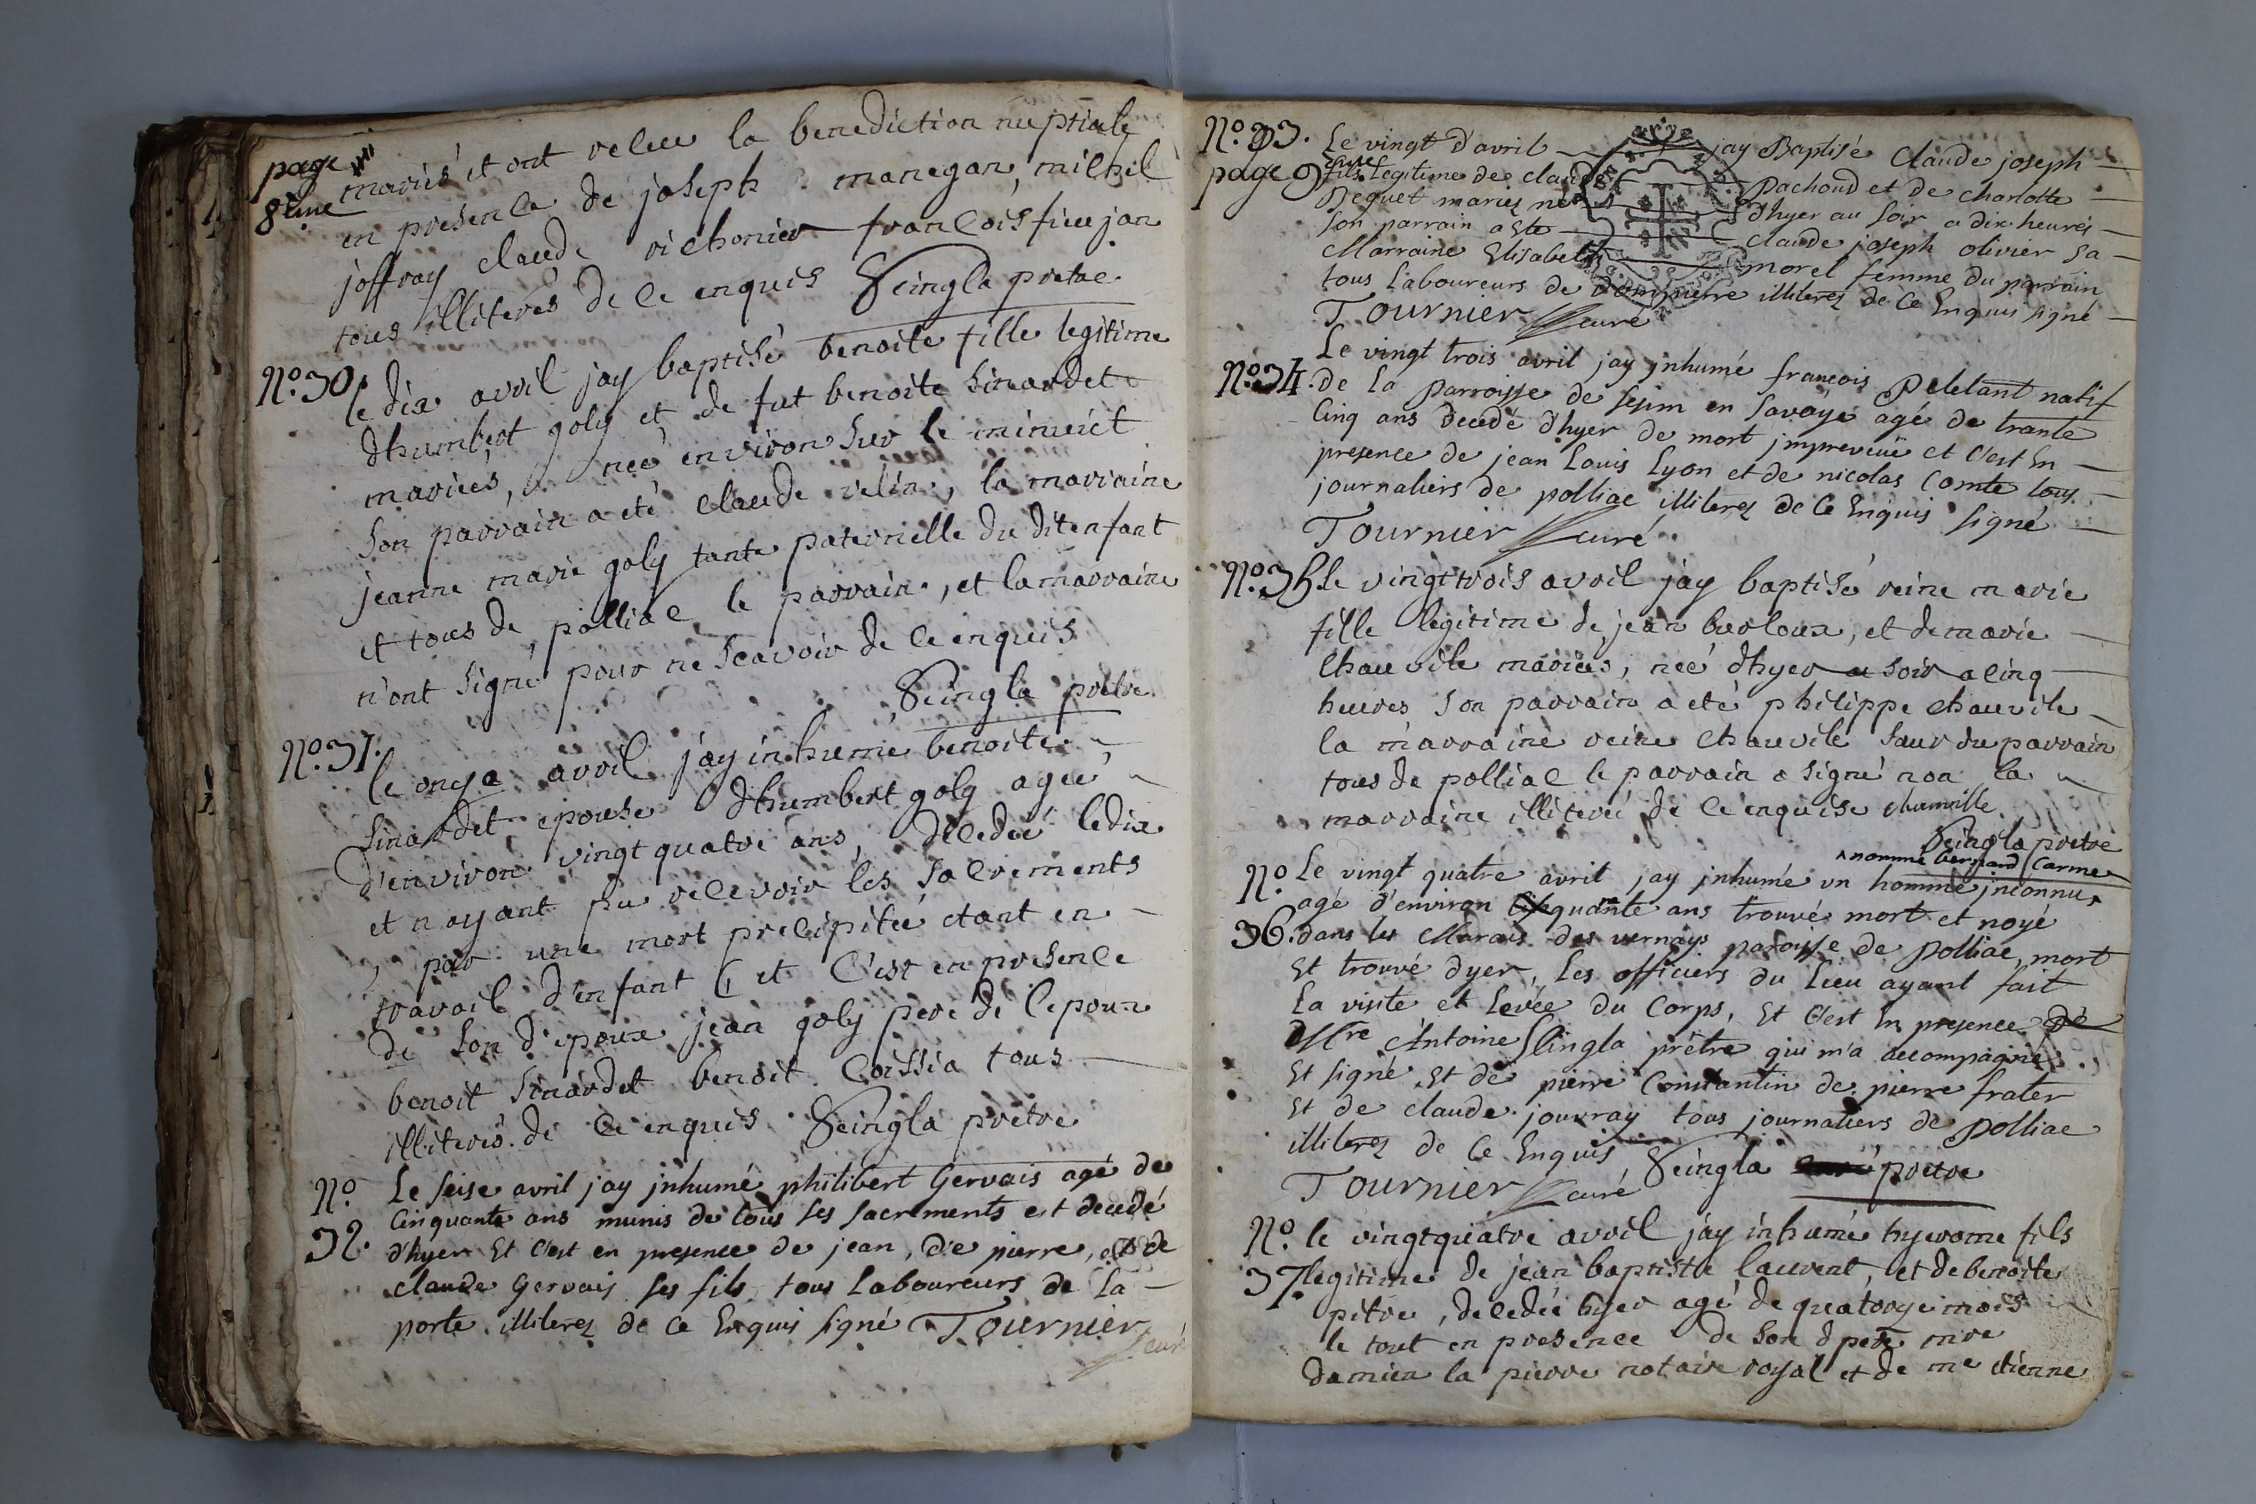 page
8eme
mariés et ont relue la benediction nuptiale
en presence de joseph manegan, michel
joffray claude richonier francois fieujan
tous illiterés de ce enquis Seingla pretre
No. 30. le dix avril jay baptisé benoite fille legitime
dhumbert goly et de fut benoite sinardet
mariés, neé environ sur le minuict
son parrain a eté claude velin, la marraine
jeanne marie goly tante paternelle du dit enfant
et tous de polliac le parrain, et la marraine
n'ont signé pour ne scavoir de ce enquis
Seingla pretre
No. 31.
le onze avril jay inhumé benoite
sinardet epouse dhumbert goly ageé
d'environ vingt quatre ans, decedeé le dix
et n'ayant pu recevoir les sacrements
par une mort precipiteé etant en
travail d'enfant, et c'est en presence
de son d. epoux jean goly pere de lepoux
benoit sinardet benoit coissia tous
illiterés de ce enquis Seingla pretre
No 32. Le seise avril jay jnhumé philibert Gervais agé de
Cinquante ans munis de tous ses sacrements et decedé
d'hyer Et c'est en presence de jean, de pierre, et de
claude Gervais ses fils tous Laboureurs de La
porte illiterez de Ce Enquis signé Tournier
curé
No. 33. Le vingt d'avril jay Baptisé Claude joseph
page 9eme fils Legitime de claude Pachoud et de charlotte
Pequet mariez né d'hyer au soir a dix heures
son parrain a ete claude joseph olivier sa
Marraine Elisabeth morel femme du parrain
tous Laboureurs de dompierre illiterez de Ce Enquis signé
Tournier curé
Le vingt trois avril jay jnhumé francois Peletant natif
No. 34. de La parroisse de sesim en savoye agé de trante
Cinq ans decedé d'hyer de mort jmpreveüe et C'est En
presence de jean Louis Lyon et de nicolas Comte tous
journaliers de polliac illiterez de Ce Enquis signé
Tournier curé
No. 35. le vingt trois avril jay baptisé reine marie
fille legitime de jean burloux, et de marie
chauvile mariés, neé dhyer au soir a cinq
heures son parrain a eté philippe chauvile
la marraine reine chauvile sœur du parrain
tous de polliac le parrain a signé non la
marraine illitereé de ce enquise chauville
Seingla pretre
nommé bernard Carme
No 36. Le vingt quatre avril jay jnhumé un homme jnconnu
agé d'environ cinquante ans trouvé mort et noyé
dans les Marais des vernays paroisse de polliac, mort
Et trouvé dyer, Les officiers du Lieu ayant fait
La visite et Levée du Corps, Et C'est En presence de
Mre Antoine Singla prêtre qui m'a accompagné
Et signé Et de pierre Constantin de pierre frater
Et de claude jouvray tous journaliers de polliac
illiterez de Ce Enquis
Tournier curé, Seingla pretre
No. 37. le vingtquatre avril jay inhumé hyerome fils
legitime de jean baptiste laurent, et de benoite
pitre, decedé hyer agé de quatorze mois
le tout en presence de son d pere mre
damien la pierre notaire royal et de me etienne